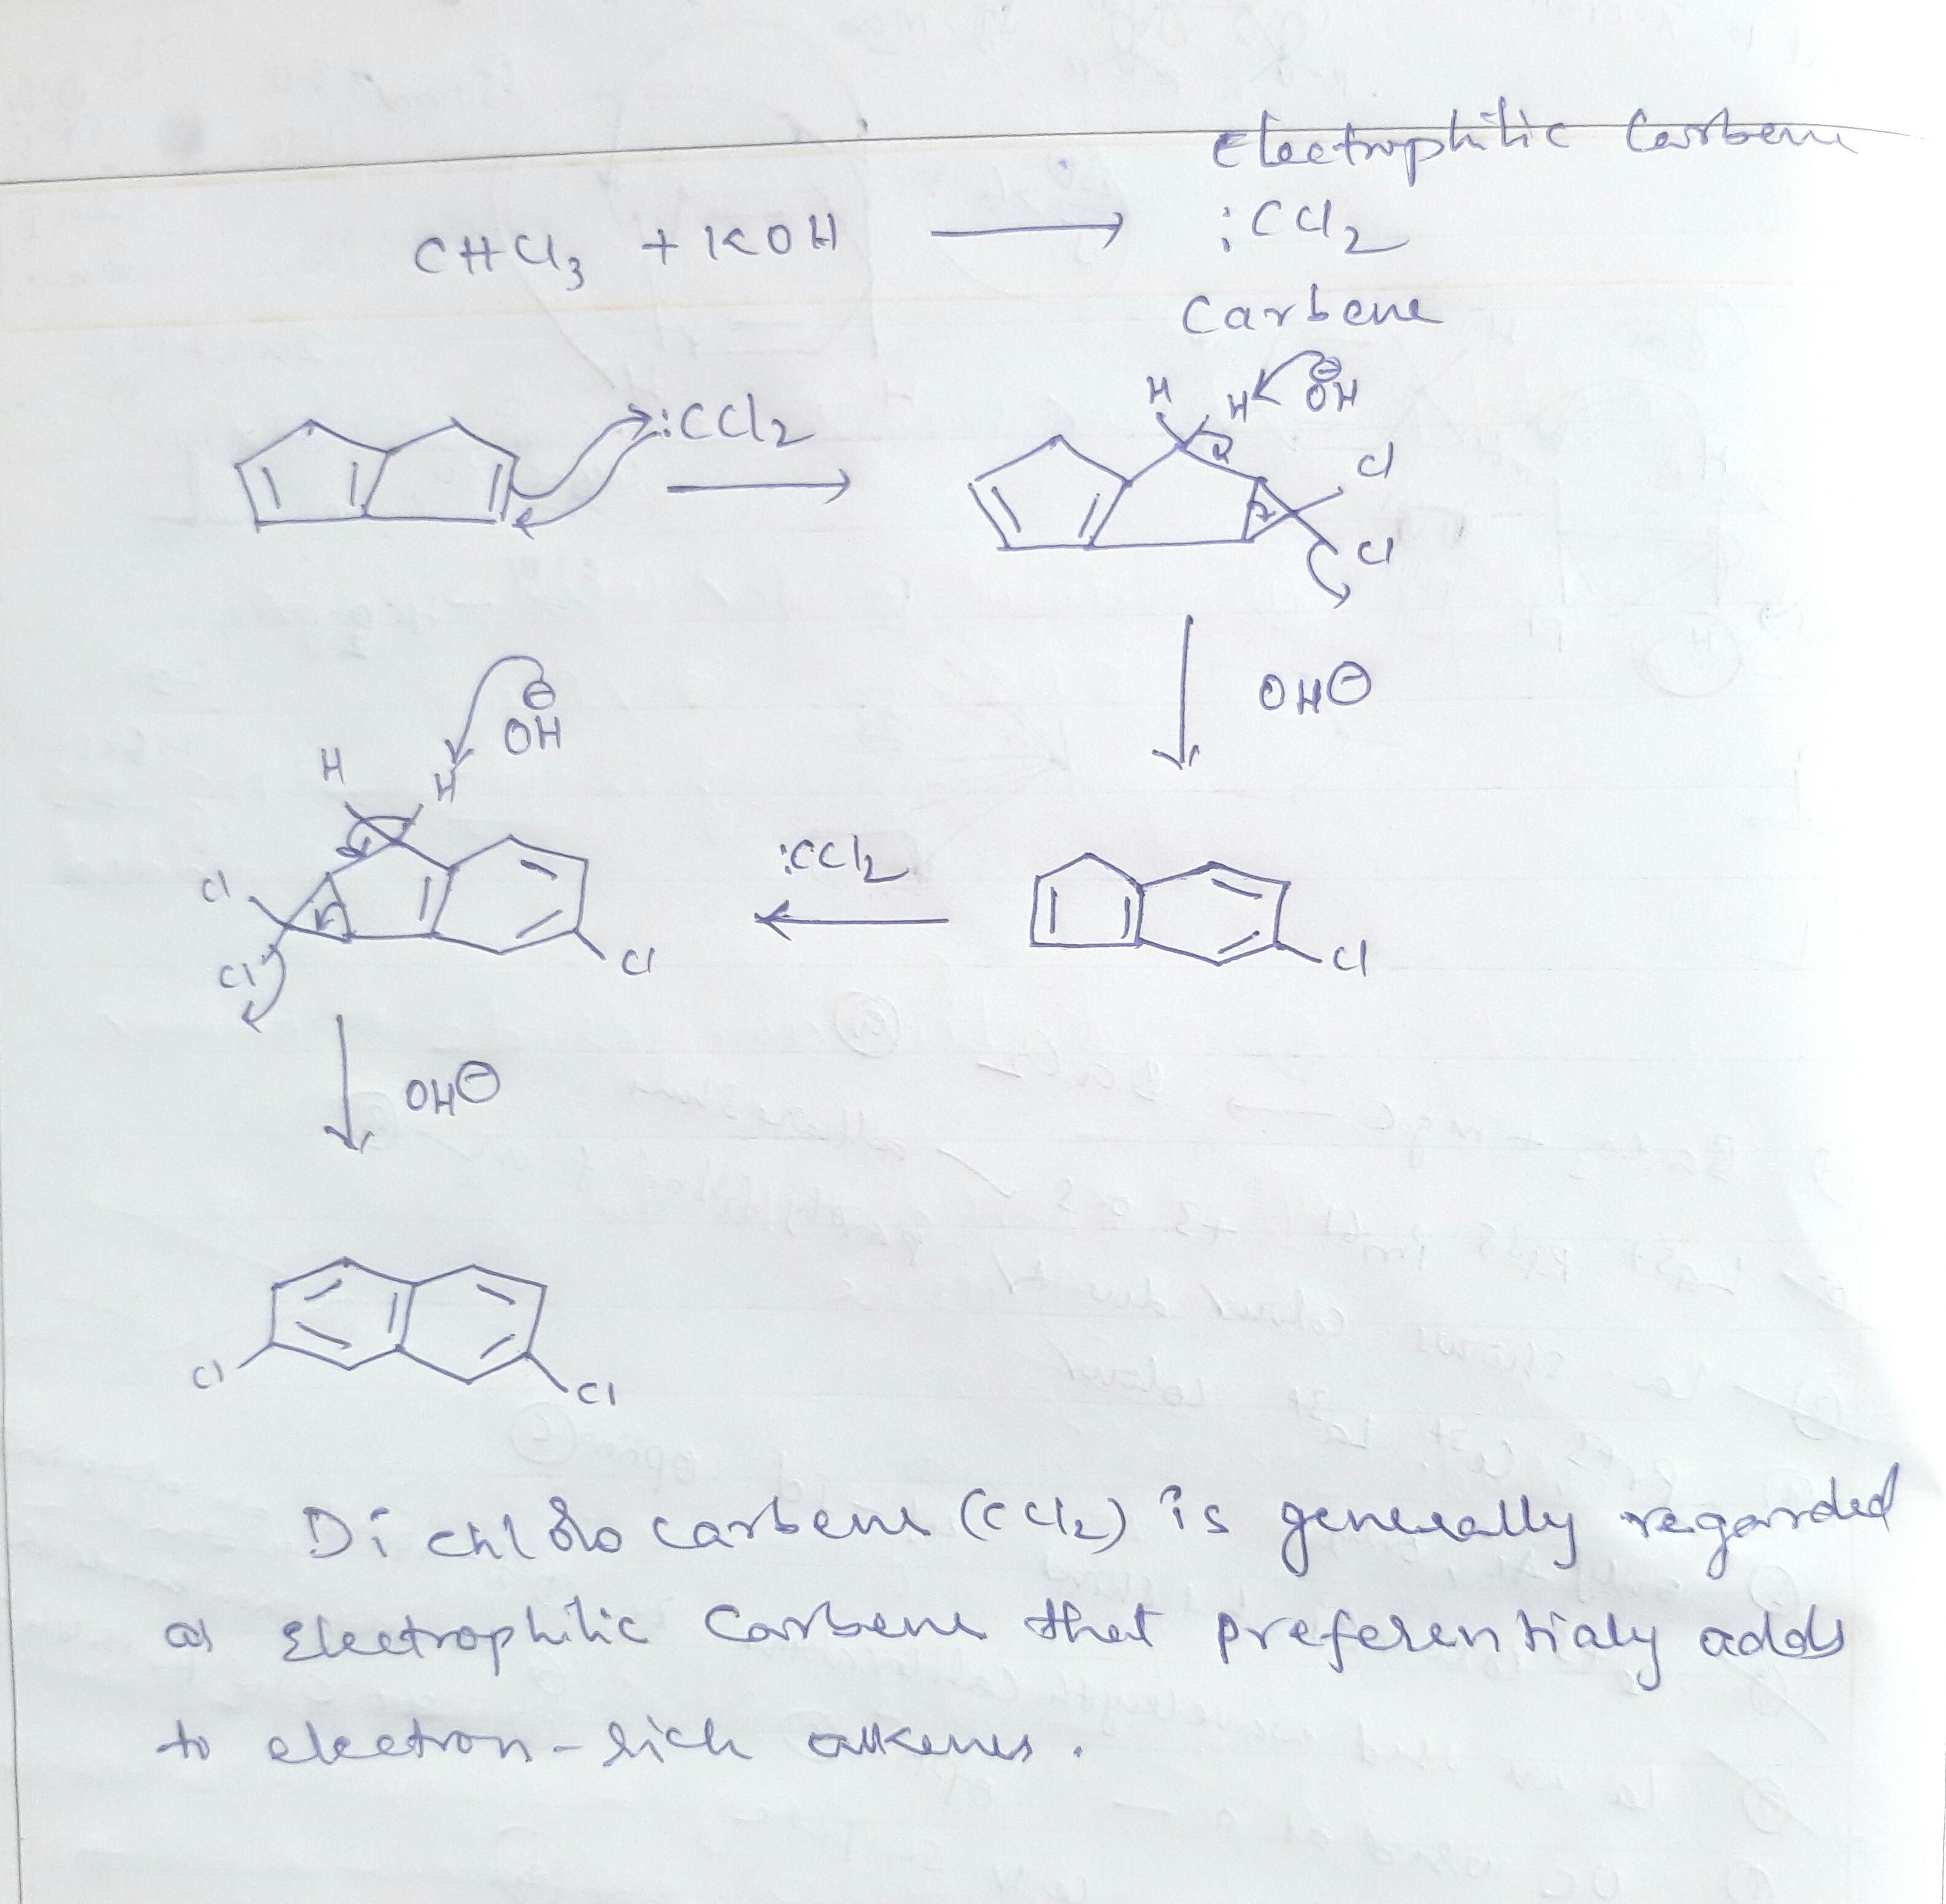 Electrophilic Carbene
CHCl3 + KOH → :CCl2
Carbene
:CCl2
H H ⊖OH
Cl
Cl
OH⊖
⊖
OH
H
H
:CCl2
Cl
Cl
Cl
Cl
OH⊖
Cl Cl
Dichloro carbene (CCl2) is generally regarded
as Electrophilic Carbene that preferentialy adds
to electron-rich alkenes.